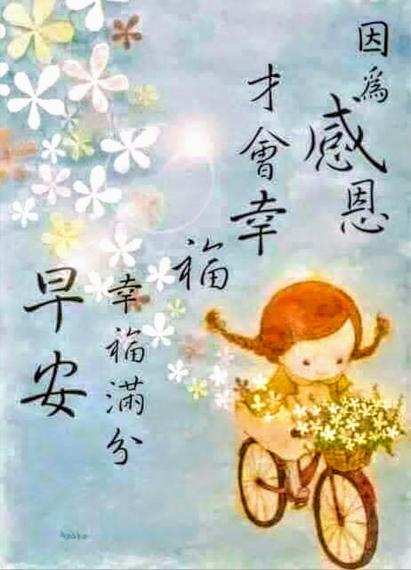 因為感恩
才會幸福
幸福滿分
早安